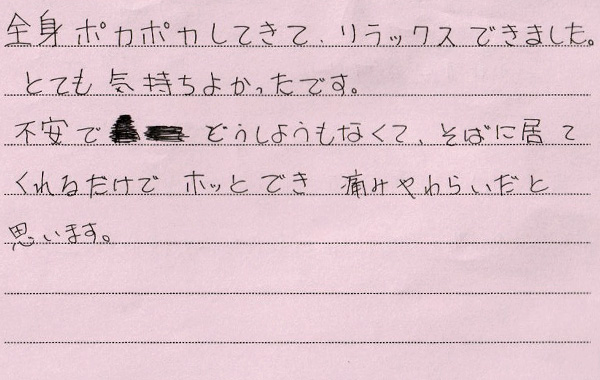 全身ポカポカしてきて、リラックスできました。
とても気持ちよかったです。
不安でどうしようもなくて、そばに居て
くれるだけでホッとでき痛みやわらいだと
思います。